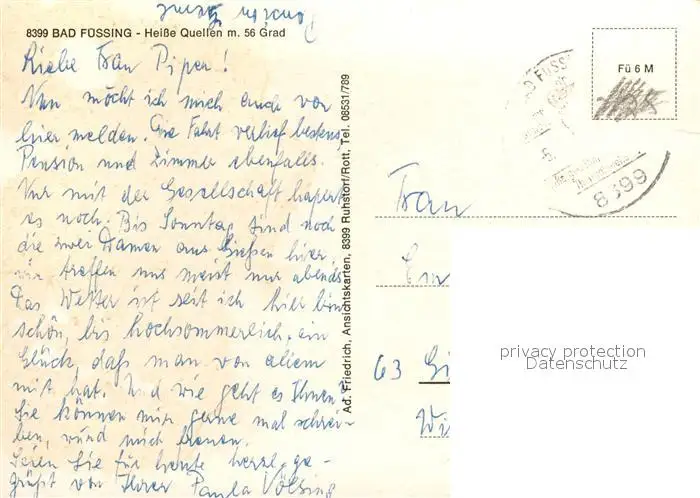 Pension
8399 BAD FÜSSING - Heiße Quellen m. 56 Grad
Liebe Frau Piper!
Nun möcht ich mich auch von
hier melden. Die Fahrt verlief bestens,
Pension und Zimmer ebenfalls.
Nur mit der Gesellschaft hapert
es noch. Bis Sonntag sind noch
die zwei Damen aus Gießen hier,
wir treffen uns meist nur abends.
Das Wetter ist seit ich hier bin
schön, bis hochsommerlich, ein
Glück, daß man von allem
mit hat. Und wie geht es Ihnen?
Sie können mir gerne mal schrei-
ben, würd mich freuen.
Seien Sie für heute herzl. ge-
grüßt von Ihrer Paula Völsing
Ad. Friedrich, Ansichtskarten, 8399 Ruhstorf/Rott, Tel. 08531/789
Fü 6 M
BAD FÜSSING
8399
Frau
63 Gi
privacy protection
Datenschutz